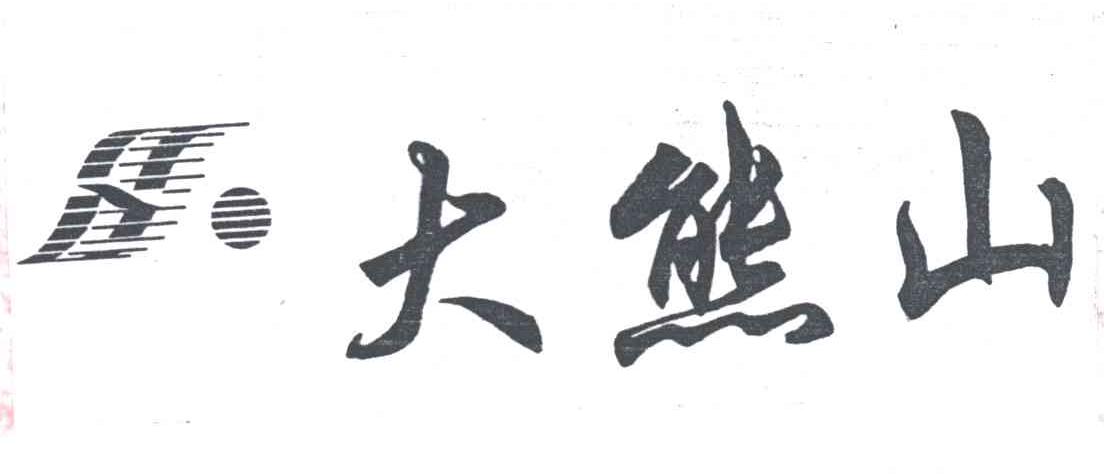 大熊山